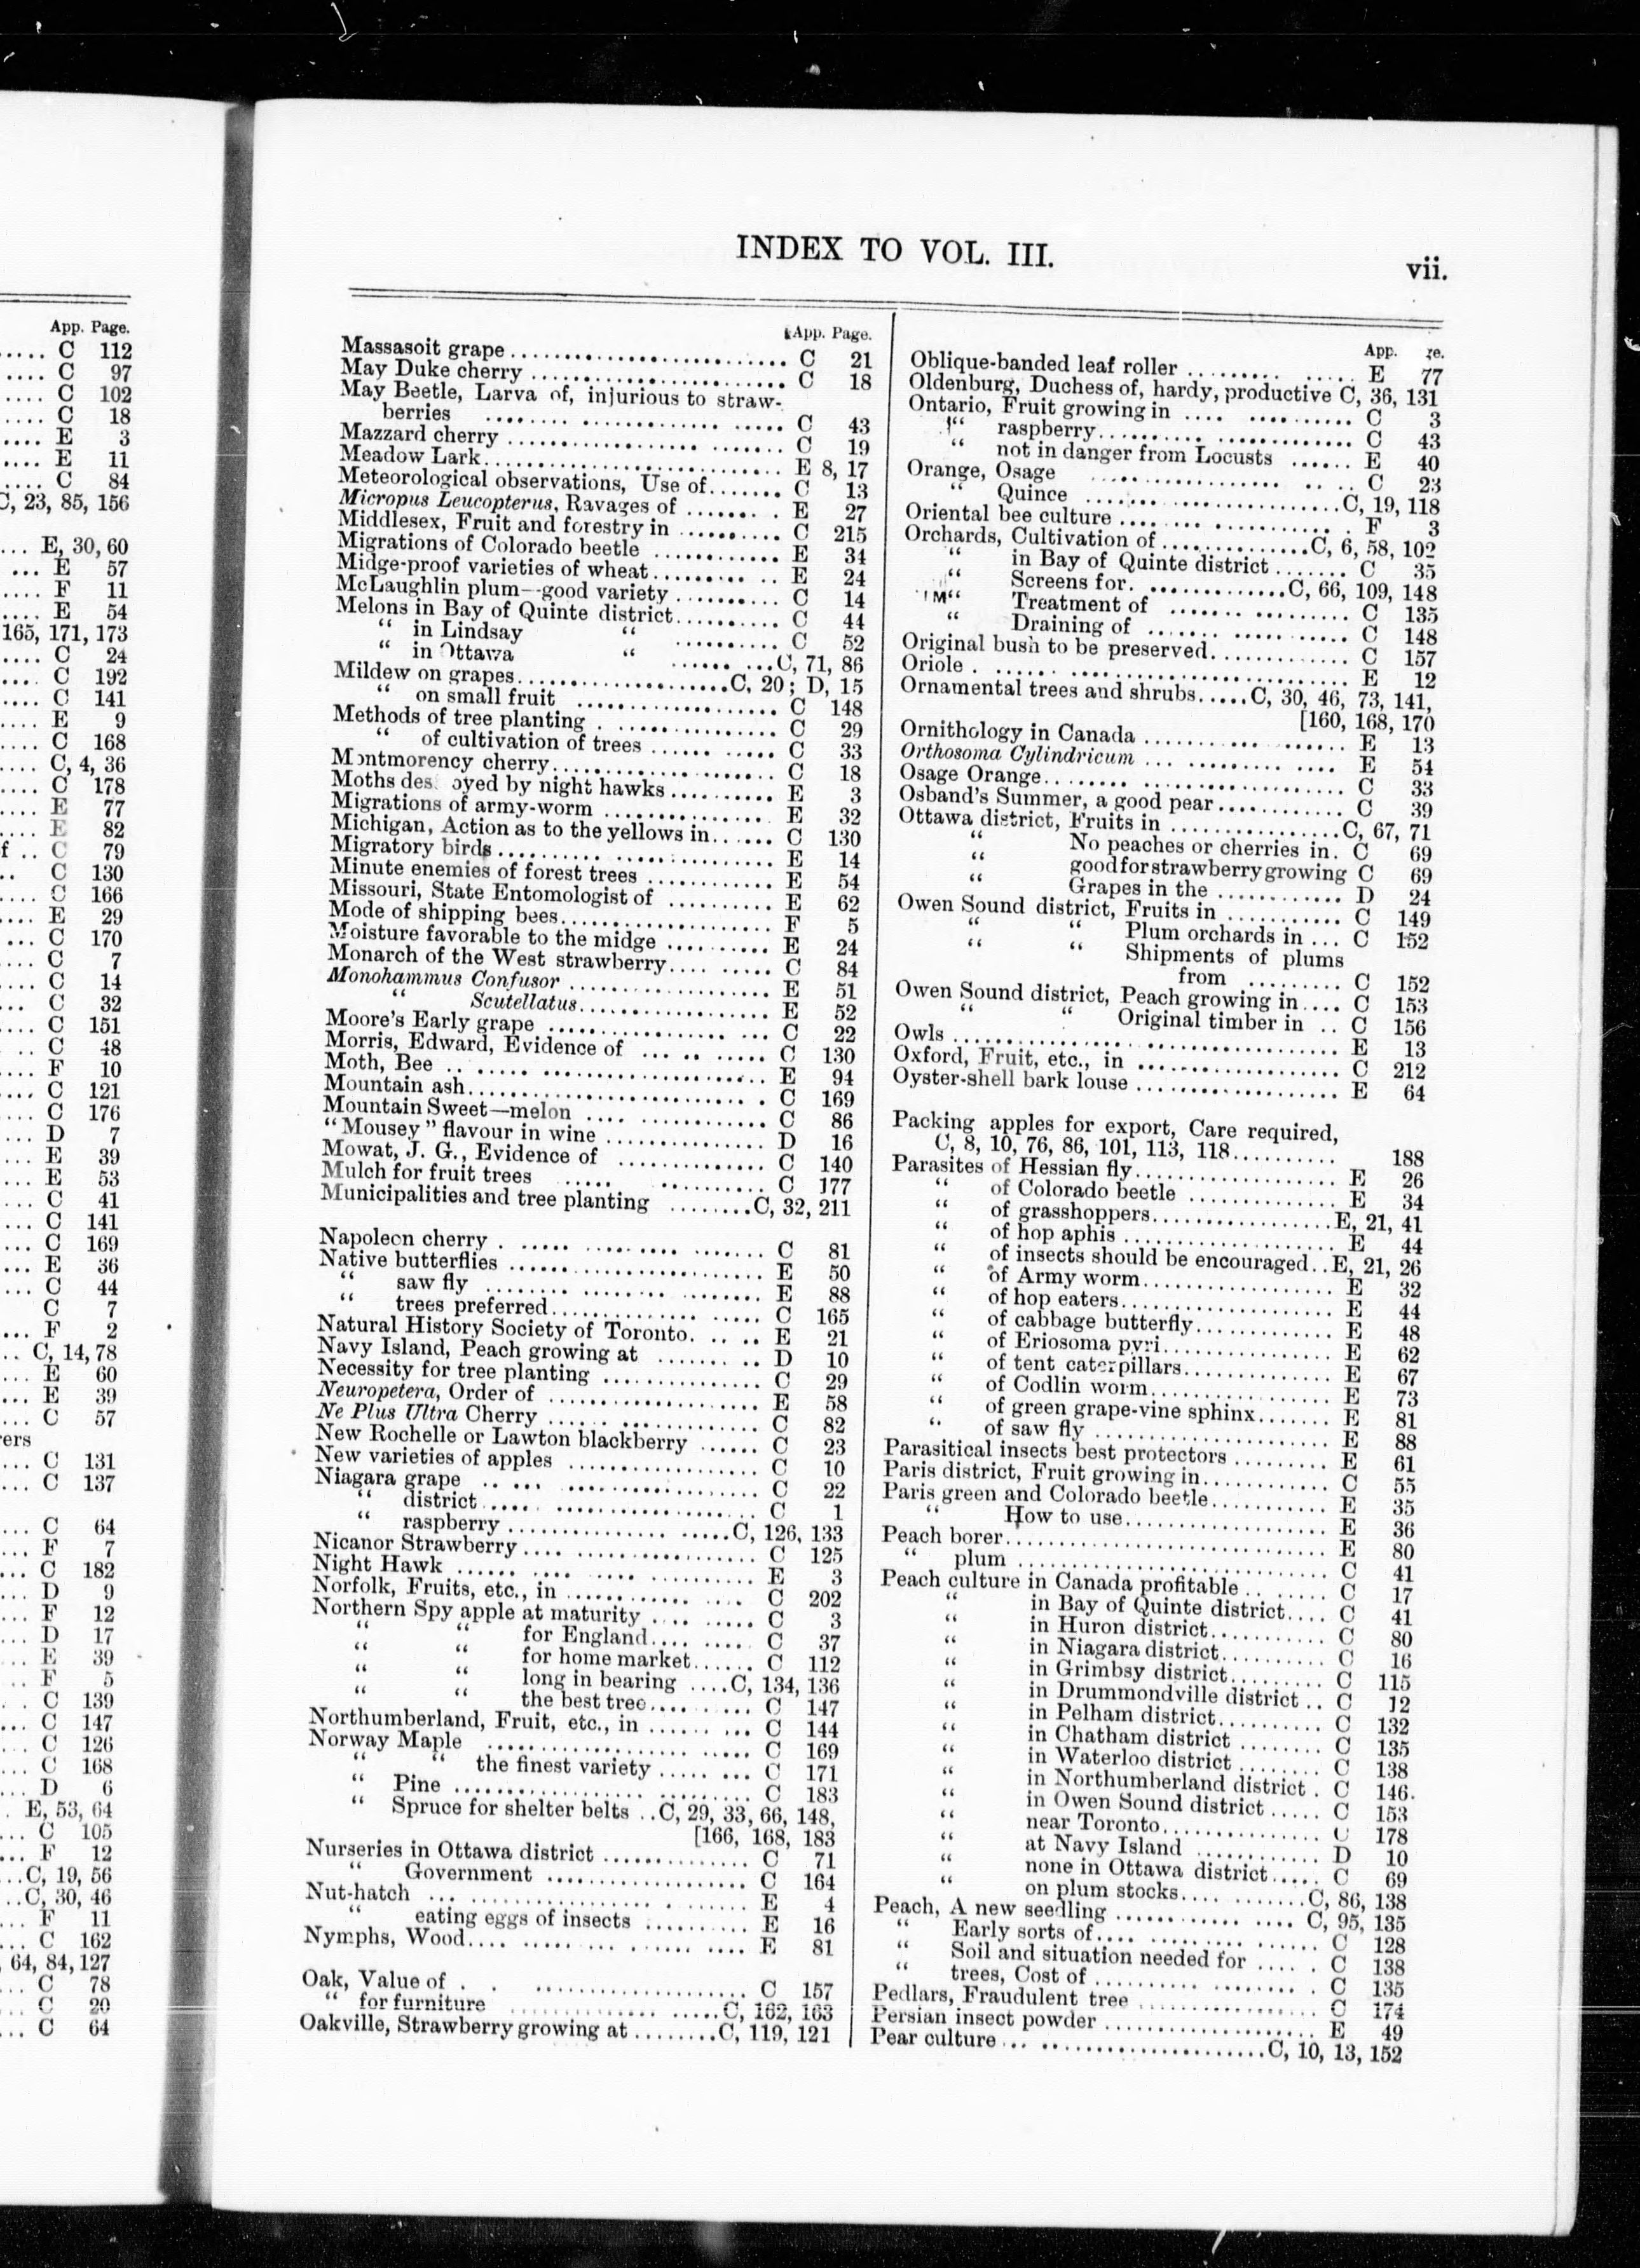 App. Page.
..... C 112
.... C 97
.... C 102
.... C 18
.... E 3
.... E 11
.... C 84
C, 23, 85, 156
... E, 30, 60
... E 57
.... F 11
.... E 54
165, 171, 173
.... C 24
.... C 192
.... C 141
.... E 9
.... C 168
.... C, 4, 36
.... C 178
.... E 77
.... E 82
f .. C 79
.. C 130
.... C 166
.... E 29
... C 170
.... C 7
.... C 14
... C 32
.... C 151
.. C 48
.... F 10
.... C 121
.... C 176
... D 7
... E 39
... E 53
... C 41
... C 141
... C 169
... E 36
... C 44
C 7
... F 2
.. C, 14, 78
... E 60
... E 39
... C 57
ers
... C 131
... C 137
... C 64
... F 7
... C 182
... D 9
... F 12
... D 17
... E 39
.. F 5
.. C 139
... C 147
... C 126
... C 168
... D 6
. E, 53, 64
... C 105
... F 12
...C, 19, 56
..C, 30, 46
... F 11
... C 162
64, 84, 127
... C 78
... C 20
... C 64
INDEX TO VOL. III.
vii.
App. Page.
Massasoit grape .......................... C 21
May Duke cherry ........................ C 18
May Beetle, Larva of, injurious to straw-
berries .......................... C 43
Mazzard cherry .......................... C 19
Meadow Lark............................ E 8, 17
Meteorological observations, Use of....... C 13
Micropus Leucopterus, Ravages of ........ E 27
Middlesex, Fruit and forestry in .......... C 215
Migrations of Colorado beetle ............ E 34
Midge-proof varieties of wheat............ E 24
McLaughlin plum—good variety .......... C 14
Melons in Bay of Quinte district.......... C 44
“ in Lindsay “ .......... C 52
“ in Ottawa “ .........C, 71, 86
Mildew on grapes......................C, 20; D, 15
“ on small fruit ................... C 148
Methods of tree planting ................. C 29
“ of cultivation of trees ............ C 33
Montmorency cherry...................... C 18
Moths des oyed by night hawks........... E 3
Migrations of army-worm ................ E 32
Michigan, Action as to the yellows in...... C 130
Migratory birds .......................... E 14
Minute enemies of forest trees ............ E 54
Missouri, State Entomologist of .......... E 62
Mode of shipping bees.................... F 5
Moisture favorable to the midge .......... E 24
Monarch of the West strawberry.......... C 84
Monohammus Confusor ................... E 51
“ Scutellatus.................. E 52
Moore's Early grape ..................... C 22
Morris, Edward, Evidence of ............. C 130
Moth, Bee .............................. E 94
Mountain ash............................ C 169
Mountain Sweet—melon ................. C 86
“Mousey” flavour in wine ............... D 16
Mowat, J. G., Evidence of .............. C 140
Mulch for fruit trees .................... C 177
Municipalities and tree planting ........C, 32, 211
Napoleon cherry ........................ C 81
Native butterflies ........................ E 50
“ saw fly .......................... E 88
“ trees preferred.................... C 165
Natural History Society of Toronto....... E 21
Navy Island, Peach growing at .......... D 10
Necessity for tree planting ............... C 29
Neuropetera, Order of .................... E 58
Ne Plus Ultra Cherry .................... C 82
New Rochelle or Lawton blackberry ...... C 23
New varieties of apples .................. C 10
Niagara grape .......................... C 22
“ district.......................... C 1
“ raspberry .....................C, 126, 133
Nicanor Strawberry...................... C 125
Night Hawk ............................ E 3
Norfolk, Fruits, etc., in .................. C 202
Northern Spy apple at maturity .......... C 3
“ “ for England.......... C 37
“ “ for home market...... C 112
“ “ long in bearing ....C, 134, 136
“ “ the best tree.......... C 147
Northumberland, Fruit, etc., in .......... C 144
Norway Maple .......................... C 169
“ “ the finest variety ......... C 171
“ Pine .......................... C 183
“ Spruce for shelter belts ..C, 29, 33, 66, 148,
[166, 168, 183
Nurseries in Ottawa district .............. C 71
“ Government ................... C 164
Nut-hatch .............................. E 4
“ eating eggs of insects .......... E 16
Nymphs, Wood.......................... E 81
Oak, Value of .......................... C 157
“ for furniture .....................C, 162, 163
Oakville, Strawberry growing at ........C, 119, 121
App. ge.
Oblique-banded leaf roller ............... E 77
Oldenburg, Duchess of, hardy, productive C, 36, 131
Ontario, Fruit growing in ............... C 3
“ raspberry........................ C 43
“ not in danger from Locusts ...... E 40
Orange, Osage .......................... C 23
“ Quince ........................C, 19, 118
Oriental bee culture ...................... F 3
Orchards, Cultivation of ...............C, 6, 58, 102
“ in Bay of Quinte district ....... C 35
“ Screens for. ..............C, 66, 109, 148
“ Treatment of ................. C 135
“ Draining of ................... C 148
Original bush to be preserved............. C 157
Oriole .................................. E 12
Ornamental trees and shrubs.....C, 30, 46, 73, 141,
[160, 168, 170
Ornithology in Canada ................... E 13
Orthosoma Cylindricum .................. E 54
Osage Orange............................ C 33
Osband's Summer, a good pear............ C 39
Ottawa district, Fruits in ................C, 67, 71
“ No peaches or cherries in. C 69
“ good for strawberry growing C 69
“ Grapes in the ............ D 24
Owen Sound district, Fruits in ........... C 149
“ “ Plum orchards in ... C 152
“ “ Shipments of plums
from .......... C 152
Owen Sound district, Peach growing in.... C 153
“ “ Original timber in .. C 156
Owls .................................... E 13
Oxford, Fruit, etc., in .................... C 212
Oyster-shell bark louse ................... E 64
Packing apples for export, Care required,
C, 8, 10, 76, 86, 101, 113, 118.......... 188
Parasites of Hessian fly................... E 26
“ of Colorado beetle .............. E 34
“ of grasshoppers.................E, 21, 41
“ of hop aphis .................... E 44
“ of insects should be encouraged..E, 21, 26
“ of Army worm.................. E 32
“ of hop eaters.................... E 44
“ of cabbage butterfly............. E 48
“ of Eriosoma pyri................ E 62
“ of tent caterpillars.............. E 67
“ of Codlin worm................. E 73
“ of green grape-vine sphinx....... E 81
“ of saw fly ...................... E 88
Parasitical insects best protectors ......... E 61
Paris district, Fruit growing in............ C 55
Paris green and Colorado beetle........... E 35
“ How to use.................... E 36
Peach borer.............................. E 80
“ plum ............................ C 41
Peach culture in Canada profitable ........ C 17
“ in Bay of Quinte district.... C 41
“ in Huron district........... C 80
“ in Niagara district.......... C 16
“ in Grimbsy district......... C 115
“ in Drummondville district .. C 12
“ in Pelham district.......... C 132
“ in Chatham district ........ C 135
“ in Waterloo district ........ C 138
“ in Northumberland district . C 146.
“ in Owen Sound district ..... C 153
“ near Toronto............... C 178
“ at Navy Island ............ D 10
“ none in Ottawa district..... C 69
“ on plum stocks...........C, 86, 138
Peach, A new seedling ................ C, 95, 135
“ Early sorts of.................... C 128
“ Soil and situation needed for ...... C 138
“ trees, Cost of .................... C 135
Pedlars, Fraudulent tree .................. C 174
Persian insect powder .................... E 49
Pear culture ..........................C, 10, 13, 152